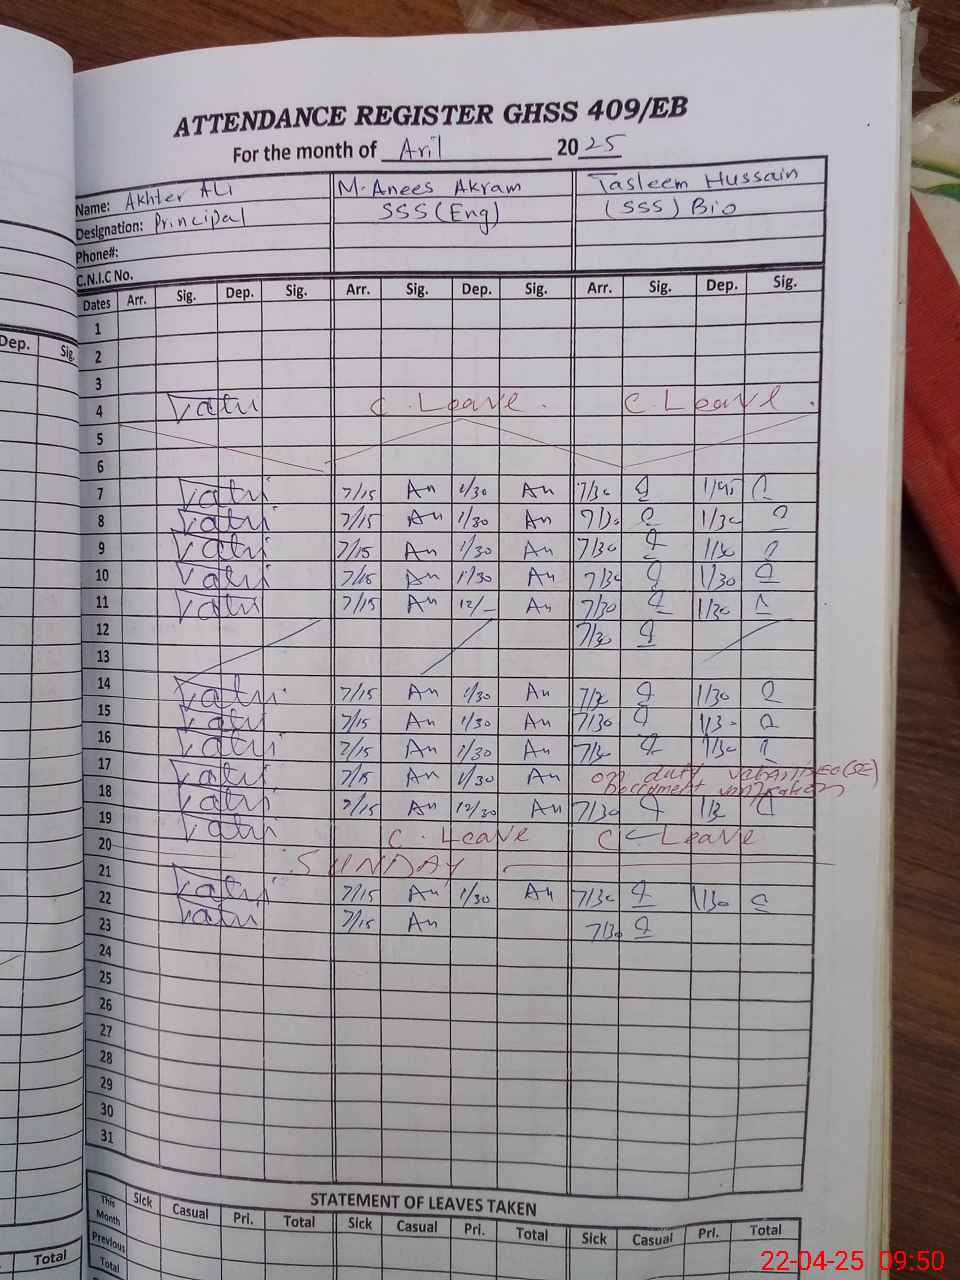 ATTENDANCE REGISTER GHSS 409/EB
For the month of Aril 2025
Name: Akhter ALi M. Anees Akram Tasleem Hussain
Designation: Principal SSS (Eng) (SSS) Bio
Phone#:
C.N.I.C No.
Dates Arr. Sig. Dep. Sig. Arr. Sig. Dep. Sig. Arr. Sig. Dep. Sig.
1
2
3
4 C. Leave. C. Leave.
5
6
7 7/15 An 1/30 An 7/30 1/45
8 7/15 An 1/30 An 7/30 1/30
9 7/15 An 1/30 An 7/30 1/30
10 7/15 An 1/30 An 7/30 1/30
11 7/15 An 12/- An 7/30 1/30
12 7/30
13
14 7/15 An 1/30 An 7/30 1/30
15 7/15 An 1/30 An 7/30 1/30
16 7/15 An 1/30 An 7/30 1/30
17 7/15 An 1/30 An on duty
18 7/15 An 12/30 An 7/30
19 C. Leave C. Leave
20
21 SUNDAY
22 7/15 An 1/30 An 7/30 1/30
23 7/15 An 7/30
24
25
26
27
28
29
30
31
STATEMENT OF LEAVES TAKEN
This Month Sick Casual Pri. Total Sick Casual Pri. Total Sick Casual Pri. Total
Previous
Total
Dep. Sig.
Total
22-04-25 09:50